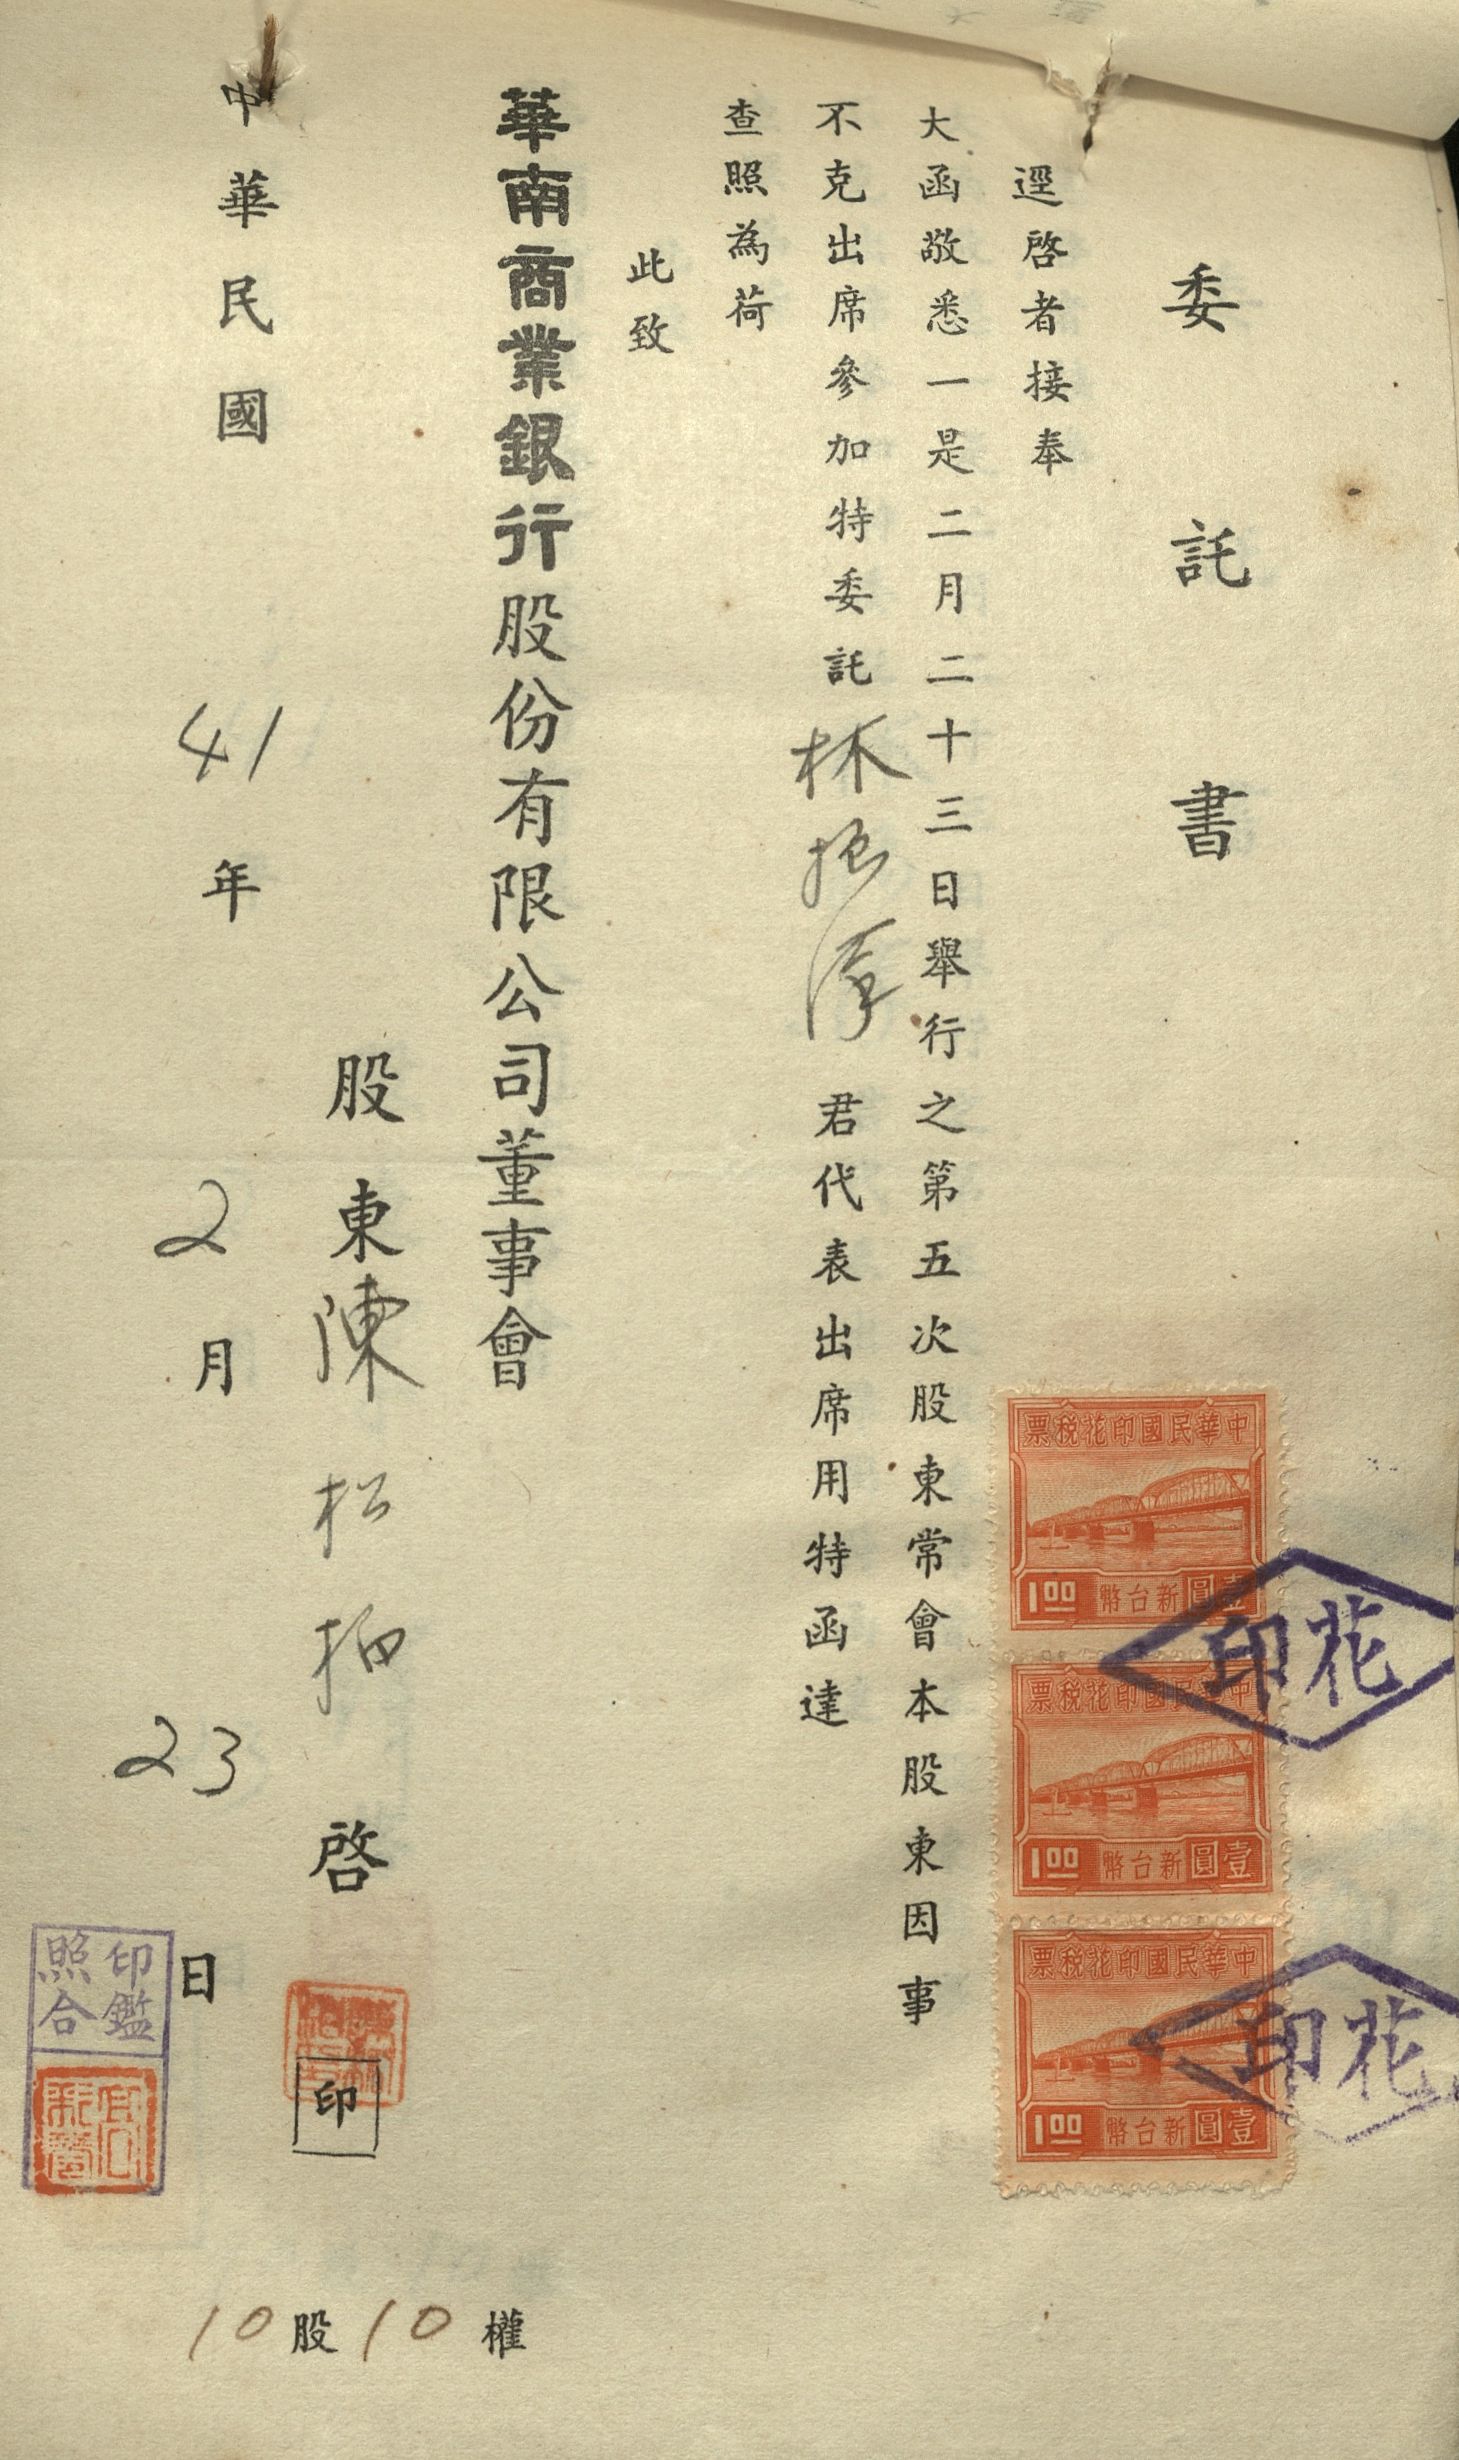 委託書
逕啓者接奉
大函敬悉一是二月二十三日舉行之第五次股東常會本股東因事
不克出席參加特委託林振 君代表出席用特函達
查照為荷
此致
華南商業銀行股份有限公司董事會
股東陳松柏啓
印
中華民國41年2月23日
10股10權
印鑑
照合
中華民國印花稅票
1.00 壹圓新台幣
中華民國印花稅票
1.00 壹圓新台幣
中華民國印花稅票
1.00 壹圓新台幣
花印
花印